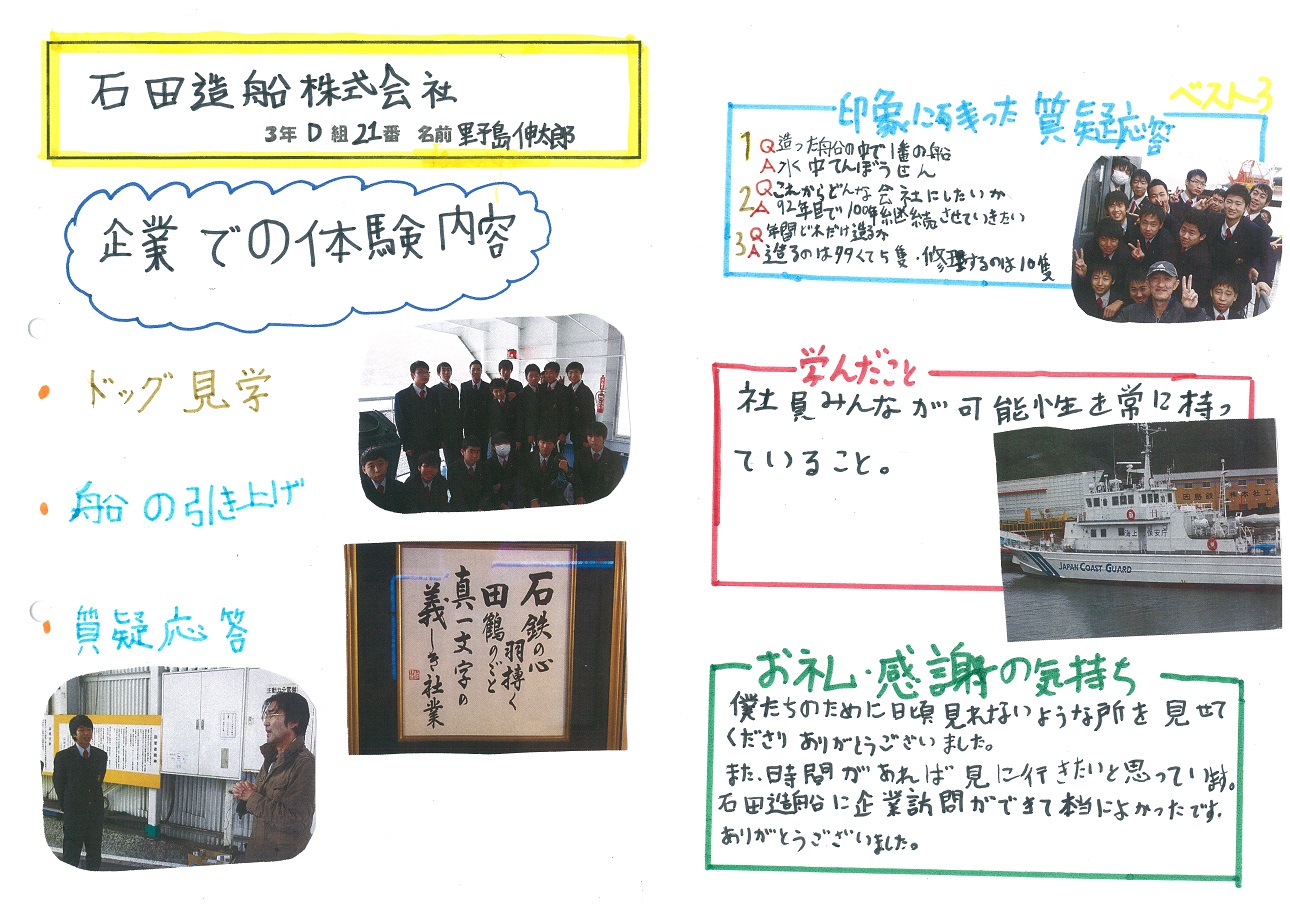 石田造船株式会社
3年 D 組 21番 名前 野島伸太郎
企業での体験内容
・ドッグ見学
・船の引き上げ
・質疑応答
石鉄の心
羽搏く
田鶴のごと
真一文字の
義しき社業
ベスト3
印象に残った質疑応答
1 Q 造った船の中で1番の船
A 水中てんぼうせん
2 Q これからどんな会社にしたいか
A 92年目で100年継続させていきたい
3 Q 年間どれだけ造るか
A 造るのは多くて5隻・修理するのは10隻
学んだこと
社員みんなが可能性を常に持っ
ていること。
海上保安庁
JAPAN COAST GUARD
お礼・感謝の気持ち
僕たちのために日頃見れないような所を見せて
くださりありがとうございました。
また、時間があれば見に行きたいと思っています。
石田造船に企業訪問ができて本当によかったです.
ありがとうございました。